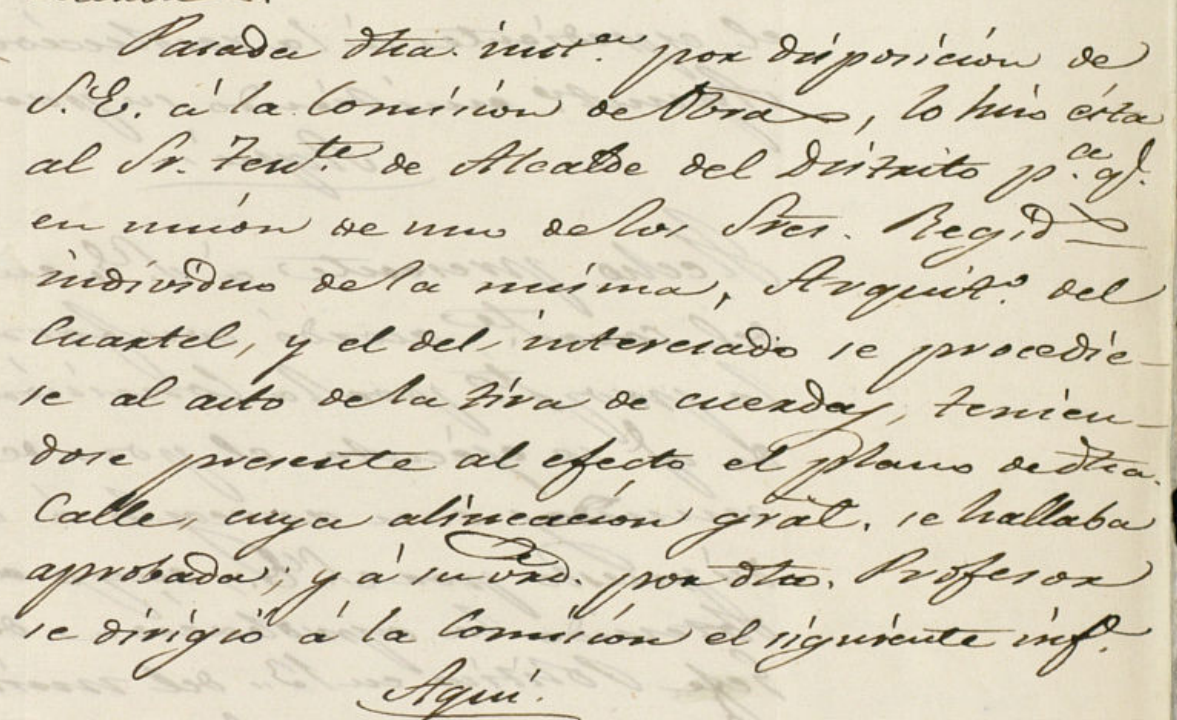 Pasada dha. inst.ª por disposicion de
S.E. á la Comision de Obras, lo hizo ésta
al Sr. Ten.te de Alcalde del Distrito p.ª q.
en union de uno de los Sres. Regid.s
individuo de la misma, Arquit.º del
Cuartel, y el del interesado se procedie-
se al acto de la tira de cuerdas, tenien-
dose presente al efecto el plano de dha.
Calle, cuya alineacion gral. se hallaba
aprobada; y á su vrd. por dho. Profesor
se dirigió á la Comision el siguiente inf.
Aqui.